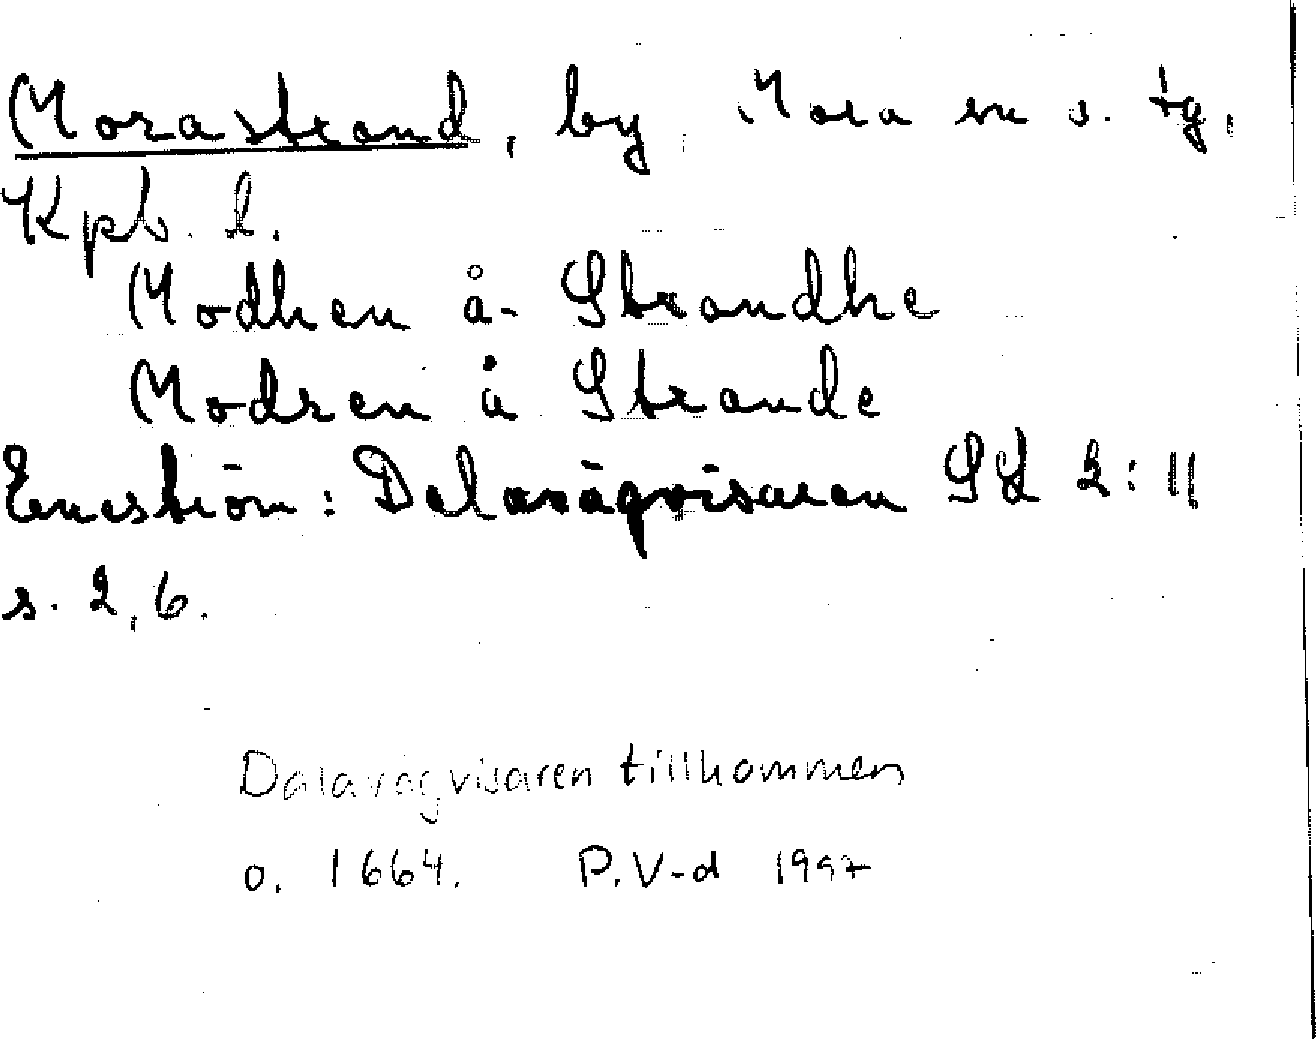 Morastrand, by, Mora sn o. tg,
Kpb. l.
Modhen å Strandhe
Modren å Strande
Eneström: Dalavägvisaren SL 2:11
s. 2, 6.
Dalavägvisaren tillkommen
o. 1664. P.V-d 1997